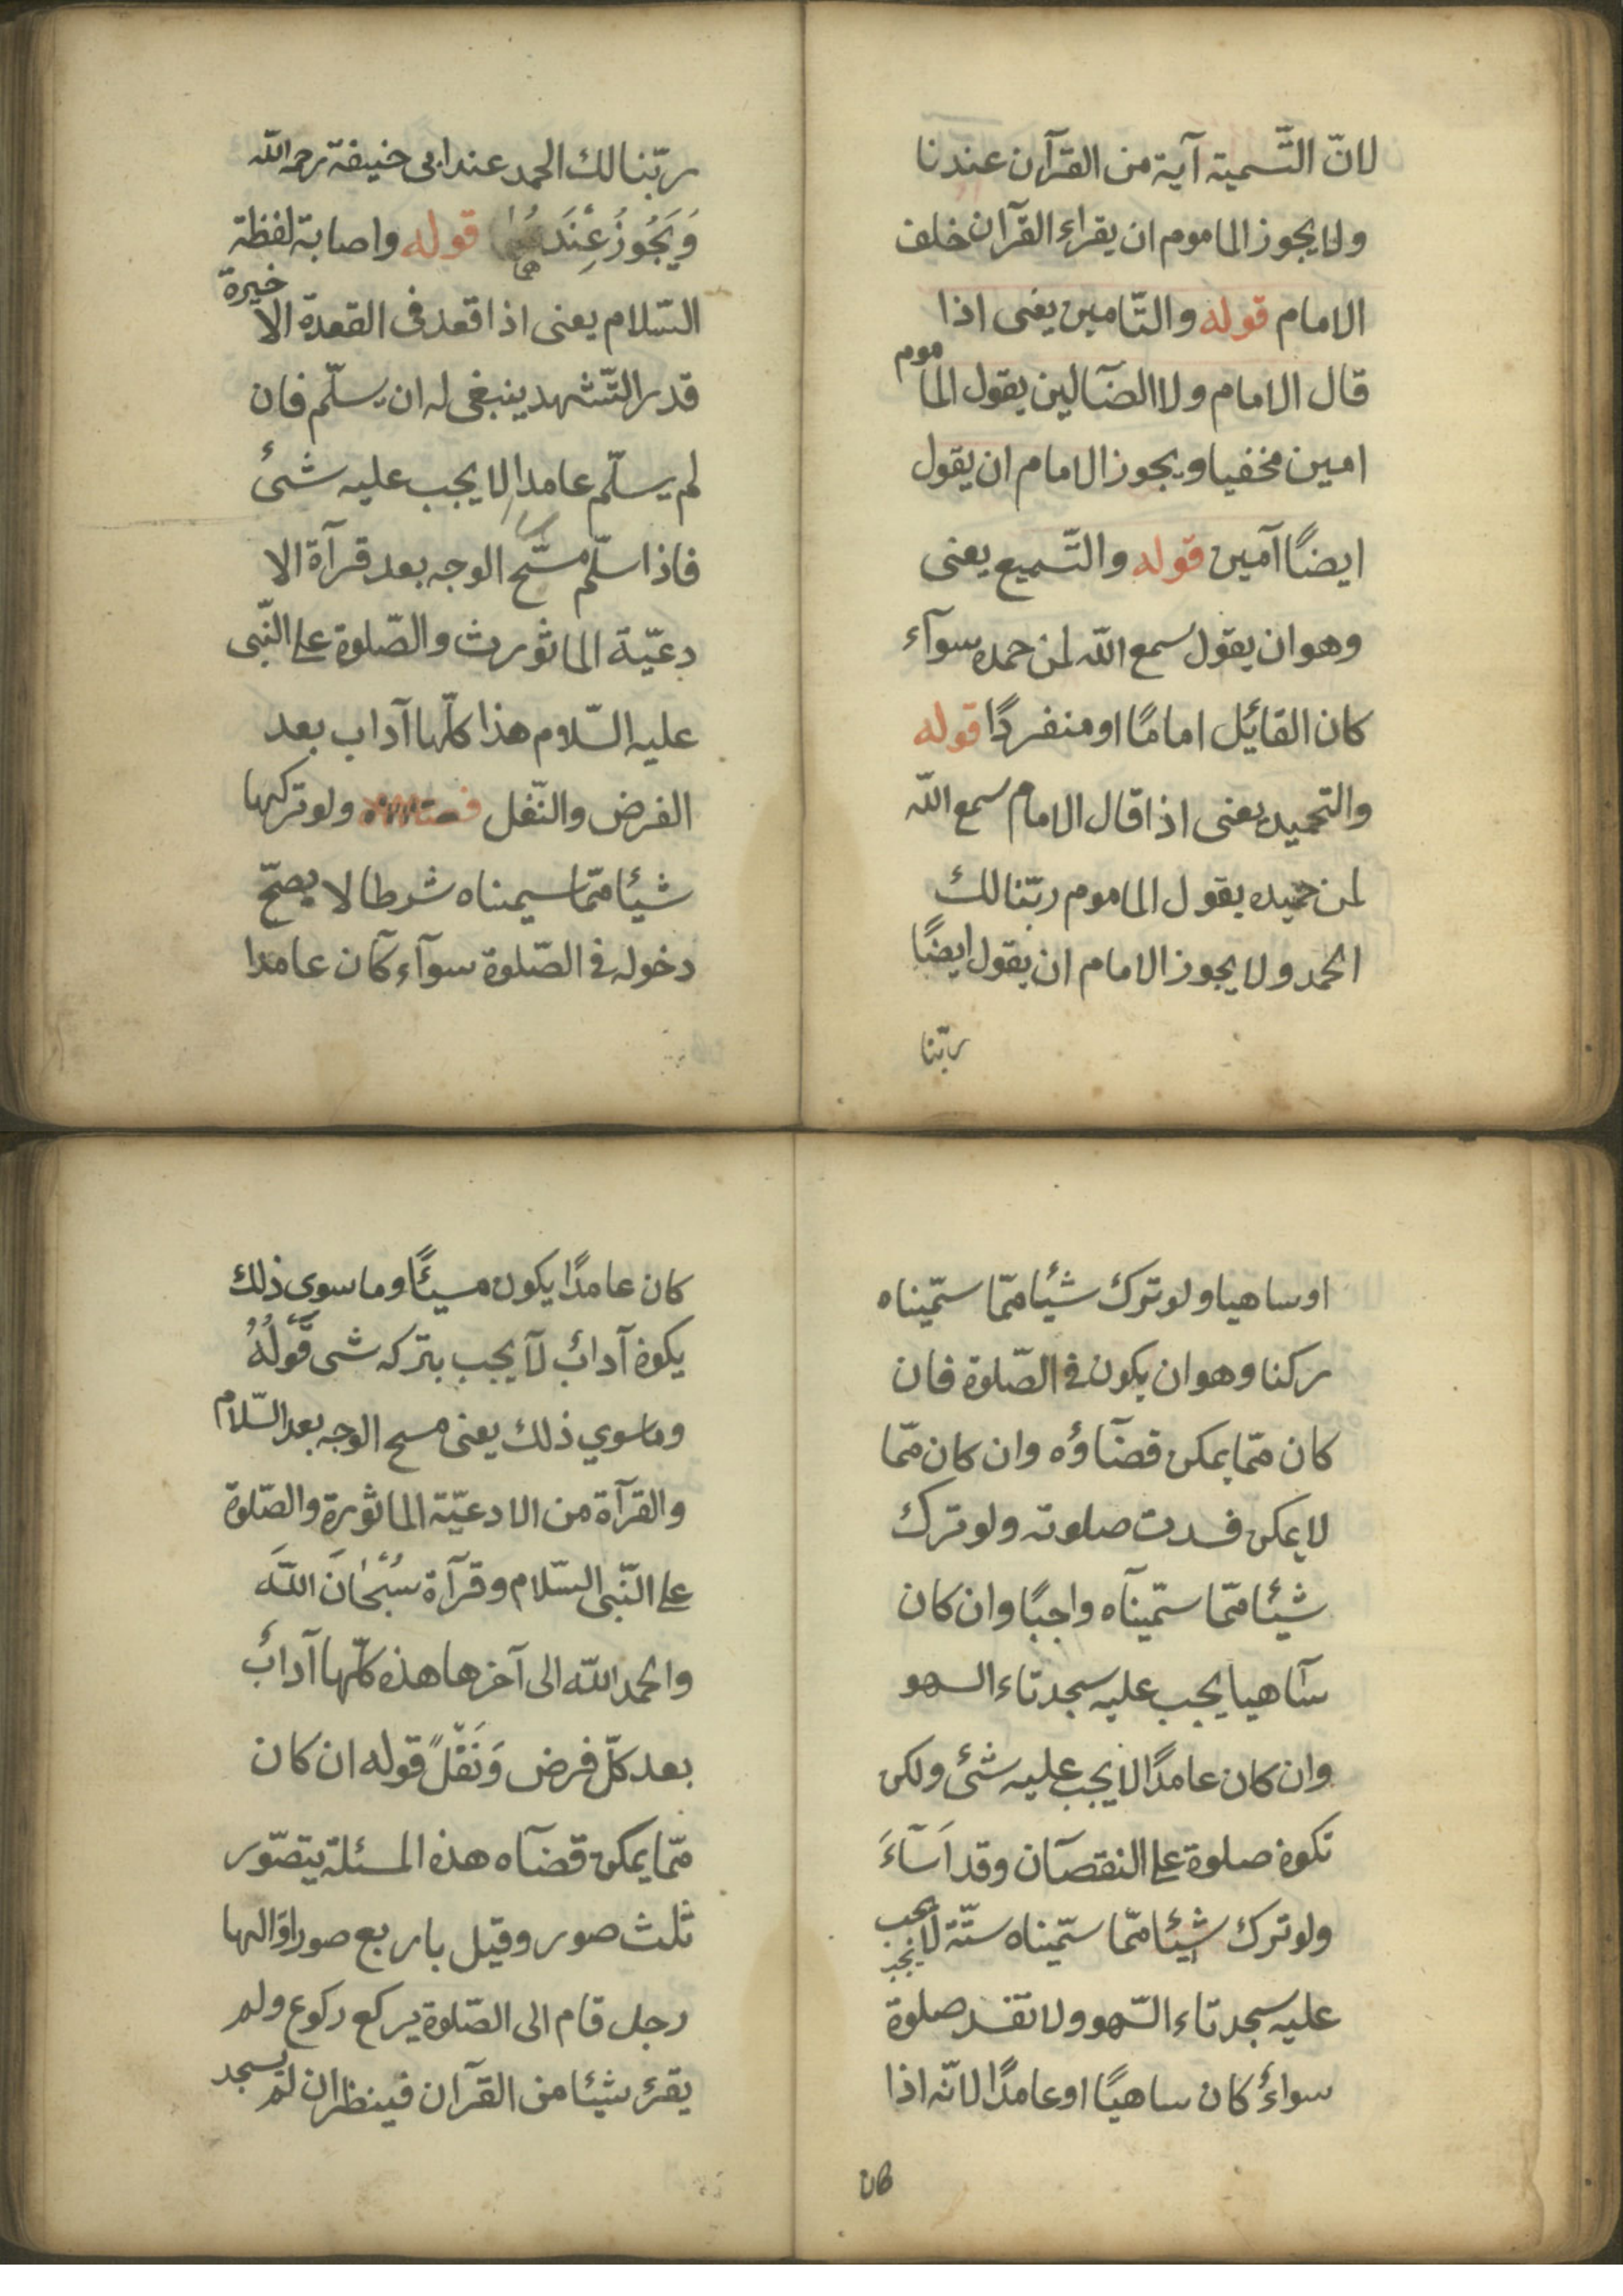 لانّ التّسمية آية من القرآن عندنا
ولا يجوز الماموم ان يقراء القرآن خلف
الامام قوله والتّامين يعنى اذا
قال الامام ولا الضآلين يقول الماموم
امين مخفيا ويجوز الامام ان يقول
ايضًا آمين قوله والتّسميع يعنى
وهو ان يقول سمع الله لمن حمده سوآء
كان القائل امامًا او منفردًا قوله
والتحميد يعنى اذا قال الامام سمع الله
لمن حميده يقول الماموم ربّنا لك
الحمد ولا يجوز الامام ان يقول ايضًا
ربّنا
ربّنا لك الحمد عند ابى حنيفة رحمه الله
وَيَجُوزُ عِنْدَ قوله واصابة لفظة
السّلام يعنى اذا قعد فى القعدة الاخيرة
قدر التّشهد ينبغى له ان يسلّم فان
لم يسلّم عامدا لا يجب عليه شىٔ
فاذا سلّم مسّح الوجه بعد قرآة الا
دعيّة الماثورت والصّلوة على النّبى
عليه السّلام هذا كلّها آداب بعد
الفرض والنّفل ولو تركها
شيئا ممّا سيمناه شرطا لا يصحّ
دخوله فى الصّلوة سوآء كآن عامدا
او ساهيا ولو ترك شيئا ممّا سمّيناه
ركنا وهو ان يكون فى الصّلوة فان
كان ممّا يمكن قضآؤه وان كان ممّا
لا يمكن فسدت صلوته ولو ترك
شيئا ممّا سمّيناه واجبًا وان كان
سآهيا يجب عليه سجدتاء السهو
وان كان عامدًا لا يجب عليه شىٔ ولكن
تكون صلوة على النقصآن وقد اَسَآءَ
ولو ترك شيئا ممّا سمّيناه سنّة لا يجب
عليه سجدتاء السّهو ولا تفسد صلوة
سواءٌ كان ساهيًا او عامدًا لانّه اذا
كان
كان عامدًا يكون مسيئًا وما سوى ذلك
يكون آدابٌ لآ يجب بتركه شى قَوْلُهُ
وماسوي ذلك يعنى مسح الوجه بعد السّلام
والقرآة من الادعيّة الماثورة والصّلوة
على النّبى السّلام وقرآة سُبْحَانَ اللّهَ
والحمد الله الى آخرها هذه كلّها آدابٌ
بعد كلّ فرض وَنَفْلً قوله ان كان
ممّا يمكن قضآه هذه المسئلة يتصوّر
ثلث صور وقيل باربع صور اوّالها
رجل قام الى الصّلوة يركع ركوع ولم
يقرئ شيئا من القرآن فينظر ان لم يسجد